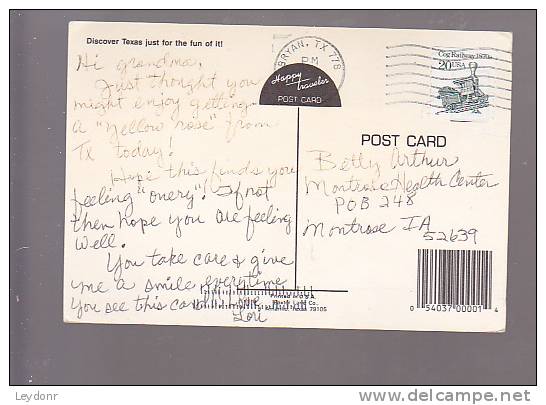 Discover Texas just for the fun of it!
Hi grandma,
Just thought you
might enjoy getting
a "yellow rose" from
TX today!
Hope this finds you
feeling "onery"! If not
then hope you are feeling
well.
You take care & give
me a smile everytime
you see this card! Love
Lori
BRYAN, TX 778
PM
Happy
traveler
POST CARD
Cog Railway 1870s
20 USA
POST CARD
Betty Arthur
Montrose Health Center
POB 248
Montrose IA
52639
Printed in U.S.A.
79105
0 54037 00001 4
Leydonr
www.delcampe.net